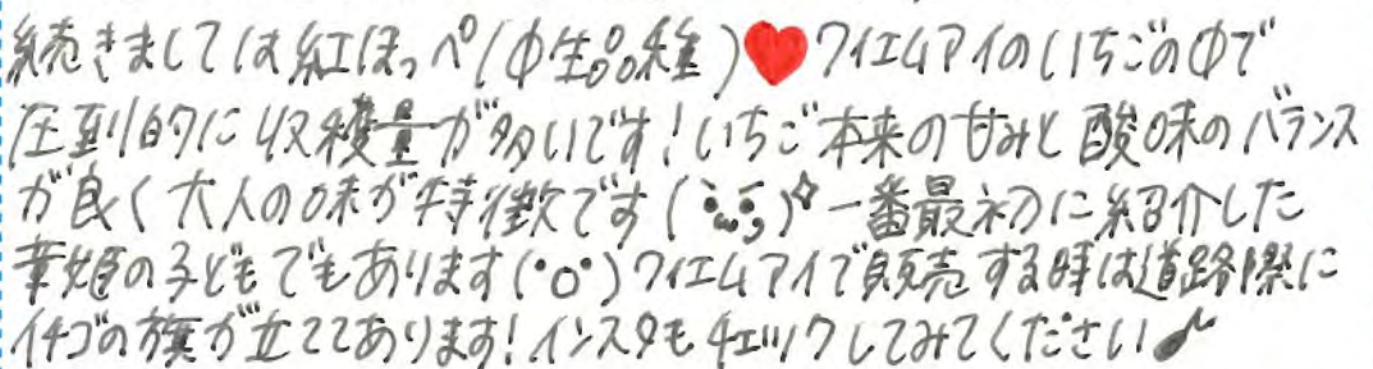 続きましては紅ほっぺ(中生品種)❤ワイエムアイのいちごの中で
圧倒的に収穫量が多いです!いちご本来の甘みと酸味のバランス
が良く大人の味が特徴です(•̀ω•́)✧一番最初に紹介した
章姫の子どもでもあります(°o°)ワイエムアイで販売する時は道路際に
イチゴの旗が立ててあります!インスタもチェックしてみてください♪